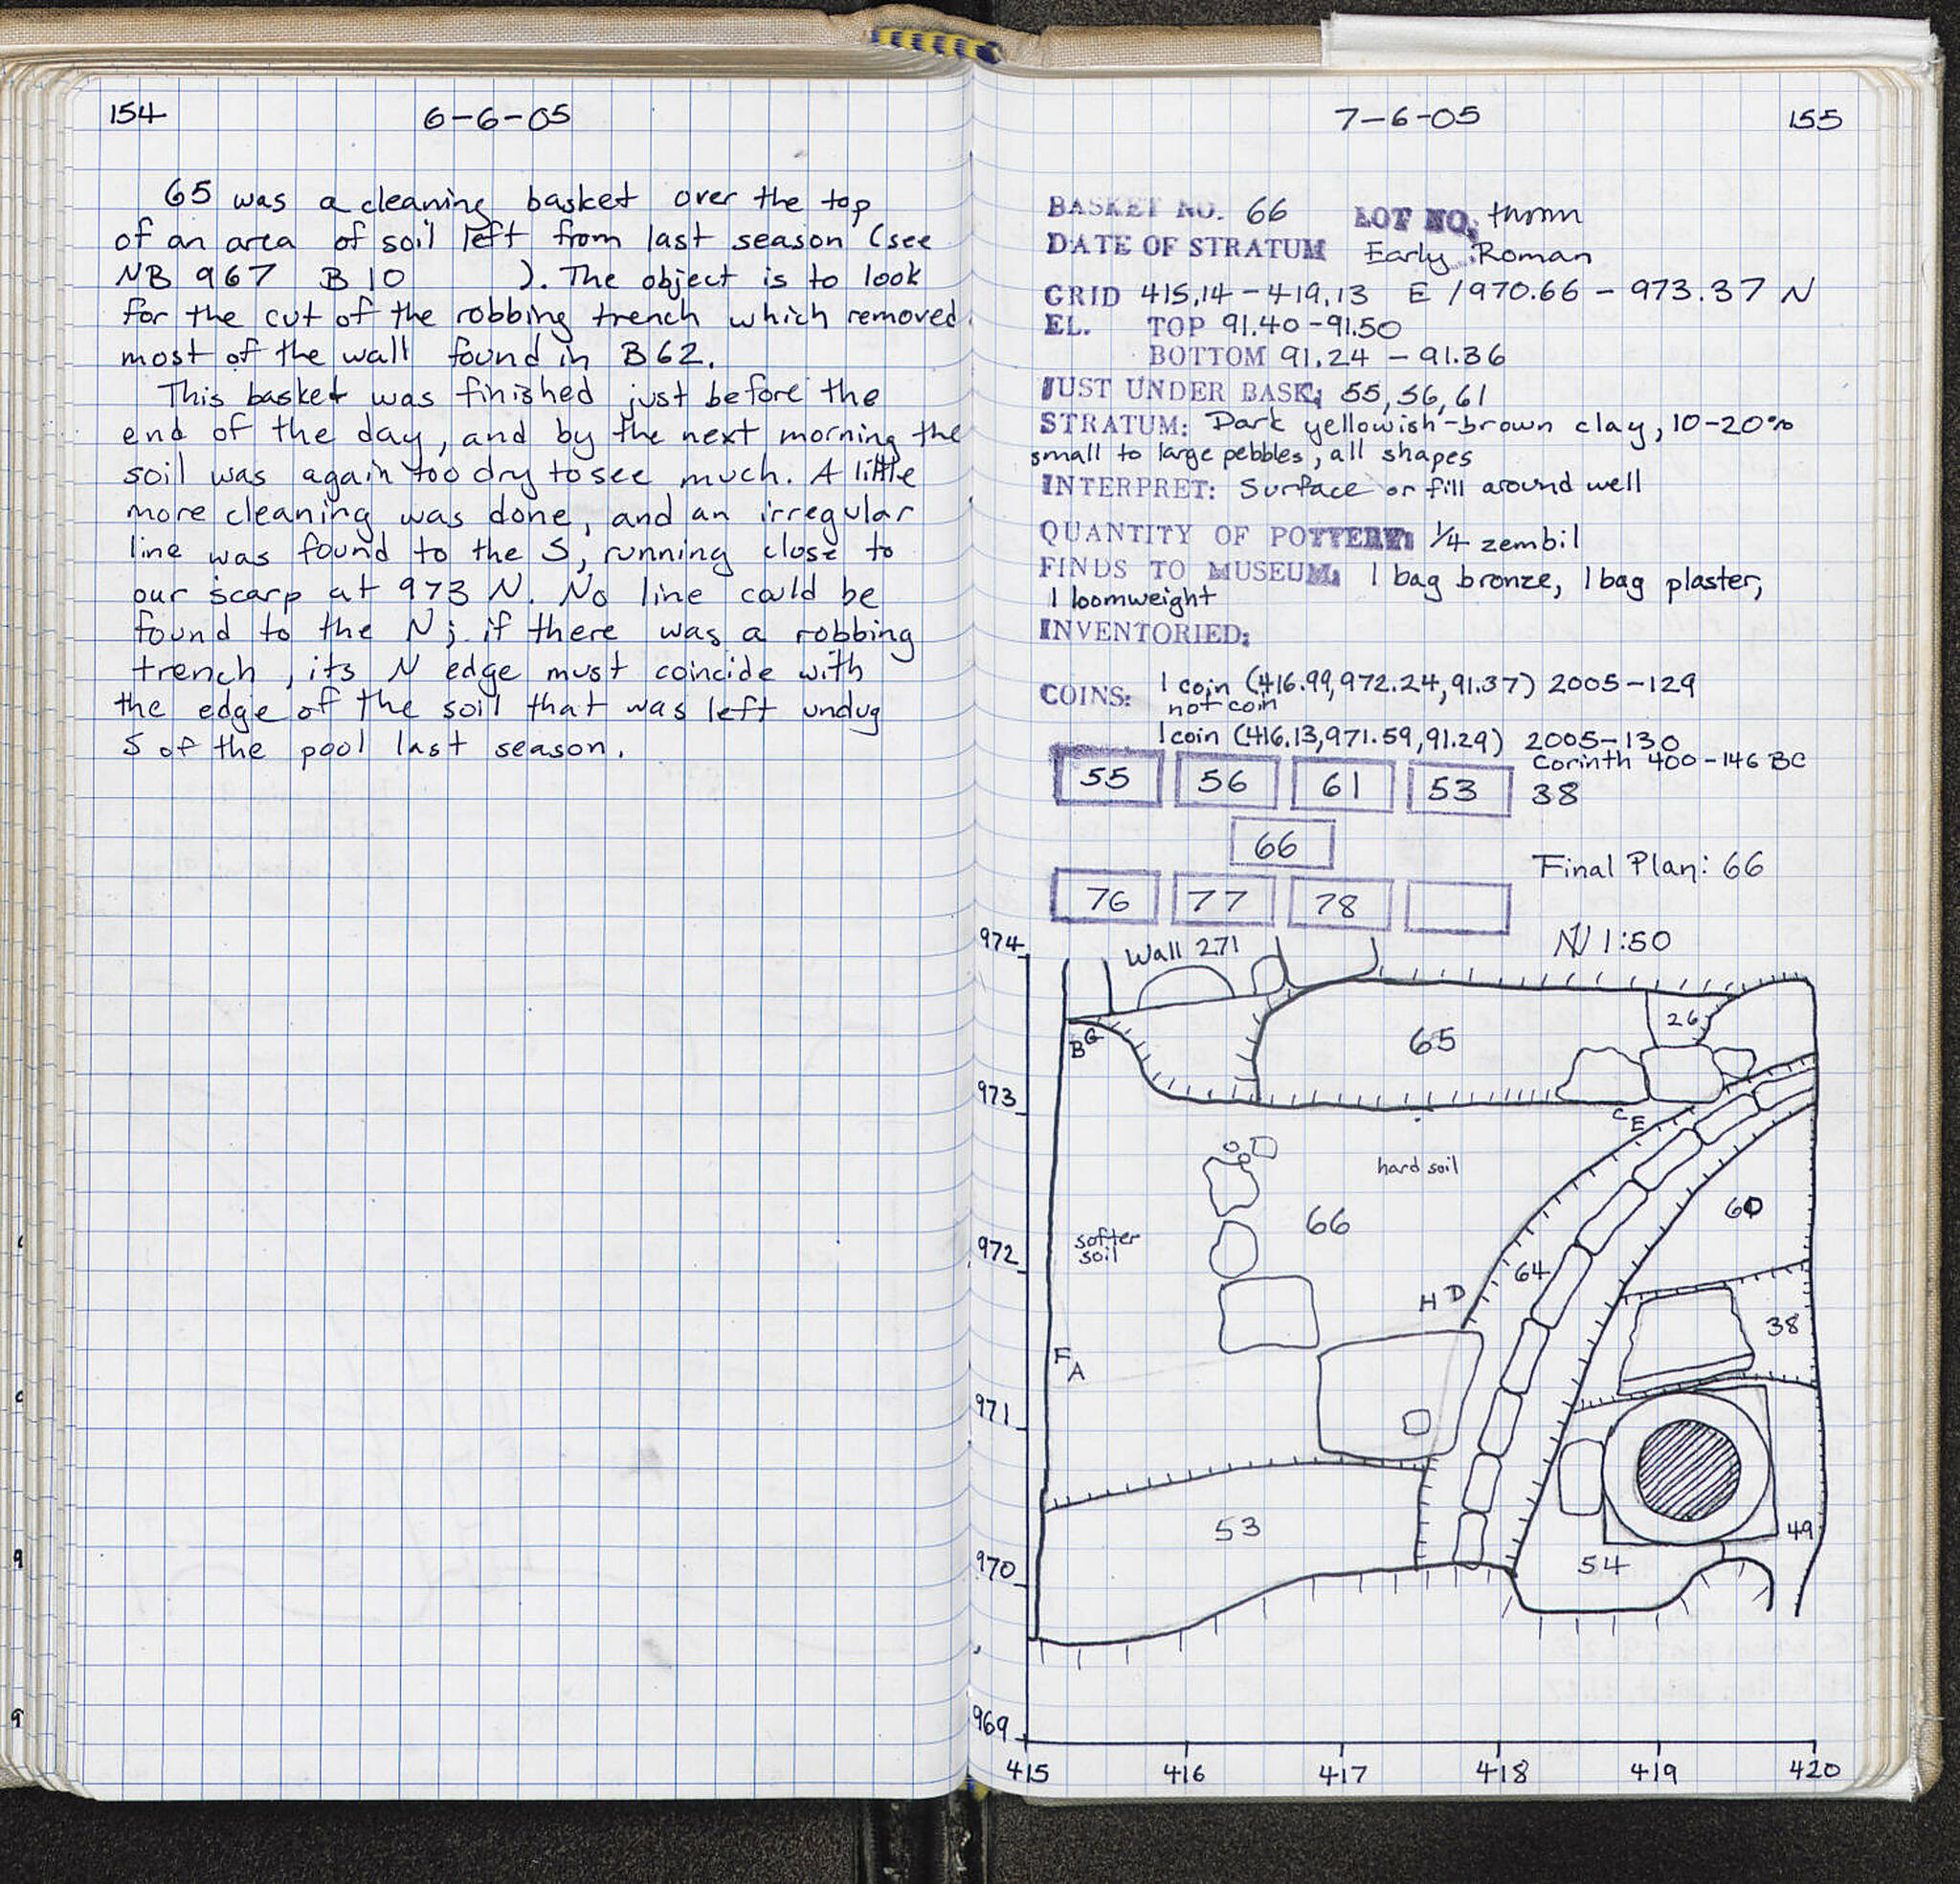 154
6-6-05
65 was a cleaning basket over the top
of an area of soil left from last season (see
NB 967 B 10 ). The object is to look
for the cut of the robbing trench which removed
most of the wall found in B62.
This basket was finished just before the
end of the day, and by the next morning the
soil was again too dry to see much. A little
more cleaning was done, and an irregular
line was found to the S, running close to
our scarp at 973 N. No line could be
found to the N; if there was a robbing
trench, its N edge must coincide with
the edge of the soil that was left undug
S of the pool last season.
7-6-05
155
BASKET NO. 66 LOT NO. thrown
DATE OF STRATUM Early Roman
GRID 415.14-419.13 E / 970.66 - 973.37 N
EL. TOP 91.40-91.50
BOTTOM 91.24 - 91.36
JUST UNDER BASK: 55, 56, 61
STRATUM: Dark yellowish-brown clay, 10-20%
small to large pebbles, all shapes
INTERPRET: Surface or fill around well
QUANTITY OF POTTERY: 1/4 zembil
FINDS TO MUSEUM: 1 bag bronze, 1 bag plaster,
1 loomweight
INVENTORIED:
COINS: 1 coin (416.99, 972.24, 91.37) 2005-129
not coin
1 coin (416.13, 971.59, 91.29) 2005-130
Corinth 400-146 BC
55 56 61 53 38
66
Final Plan: 66
76 77 78
N 1:50
974
Wall 271
26
65
B G
973
C E
hard soil
60
66
softer
soil
972
64
H D
38
F A
971
53
49
54
970
969
415 416 417 418 419 420